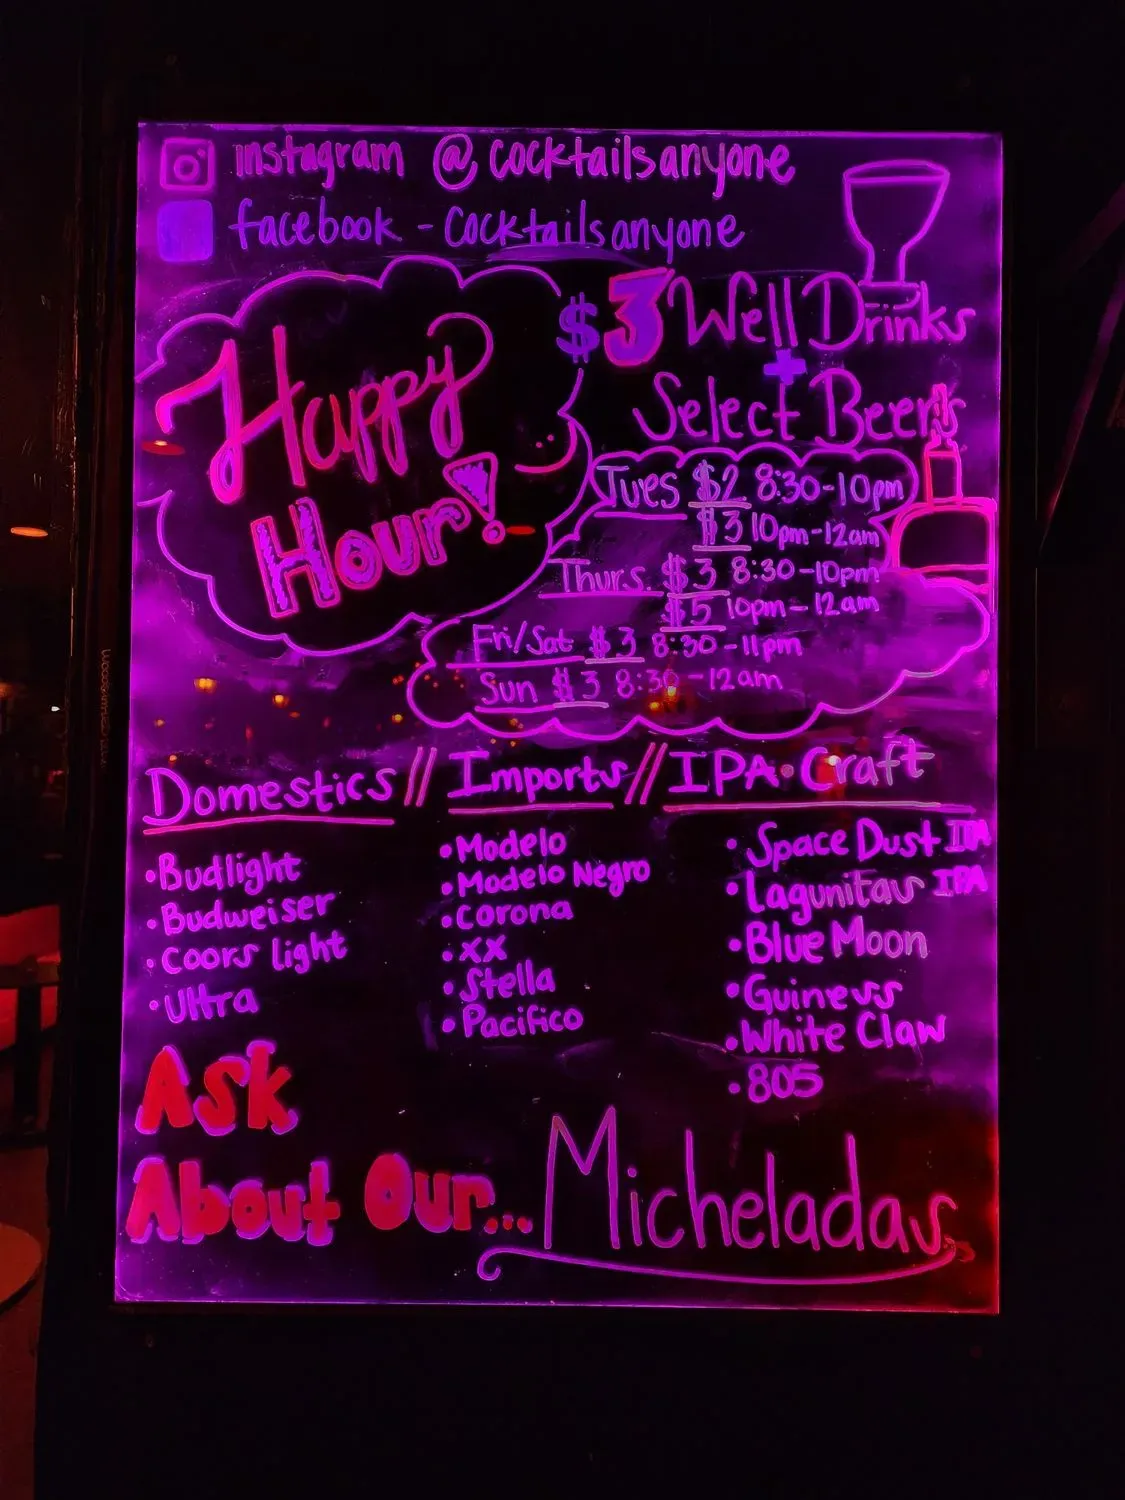 instagram @cocktailsanyone
facebook - cocktailsanyone
Happy
Hour!
$3 Well Drinks
+
Select Beers
Tues $2 8:30-10pm
$3 10pm-12am
Thurs. $3 8:30-10pm
$5 10pm-12am
Fri/Sat $3 8:30-11pm
Sun $3 8:30-12am
Domestics // Imports // IPA·Craft
•Budlight
•Budweiser
•Coors light
•Ultra
•Modelo
•Modelo Negro
•Corona
•XX
•Stella
•Pacifico
•Space Dust IPA
•Lagunitas IPA
•Blue Moon
•Guiness
•White Claw
•805
Ask
About Our... Micheladas